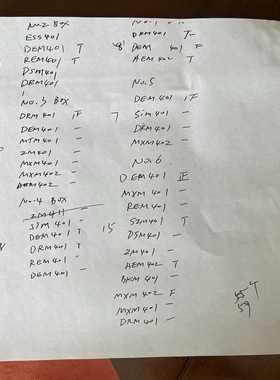 No.2 Box
ESS401
DEM401 T
REM401 T
DSM401
DRM401
No.3 Box
DRM401 正
DEM401 -
MTM401 -
ZM401 -
MXM401 -
MXM402 -
AEM402 -
No.4 Box
ZM411
SIM401 -
DEM401 T
DRM401 T
REM401 -
DEM401 -
DRM401 T
8 DEM401 F
AEM402 T
No.5
DEM401 F
7 SIM401 -
DRM401 -
MXM402 -
No.6
DEM401 正
MXM401 -
REM401 -
15 SZM401 T
DSM401 -
ZM401 -
AEM402 T
BKM401 -
MXM402 F
MXM401 -
DRM401 -
59